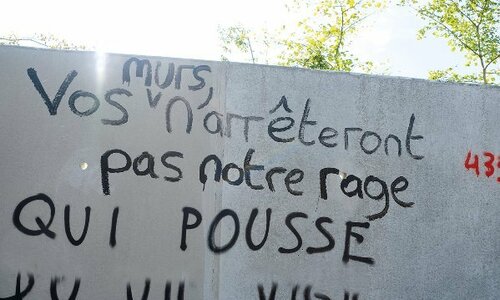 Vos murs, n'arrêteront
pas notre rage
435
QUI POUSSE